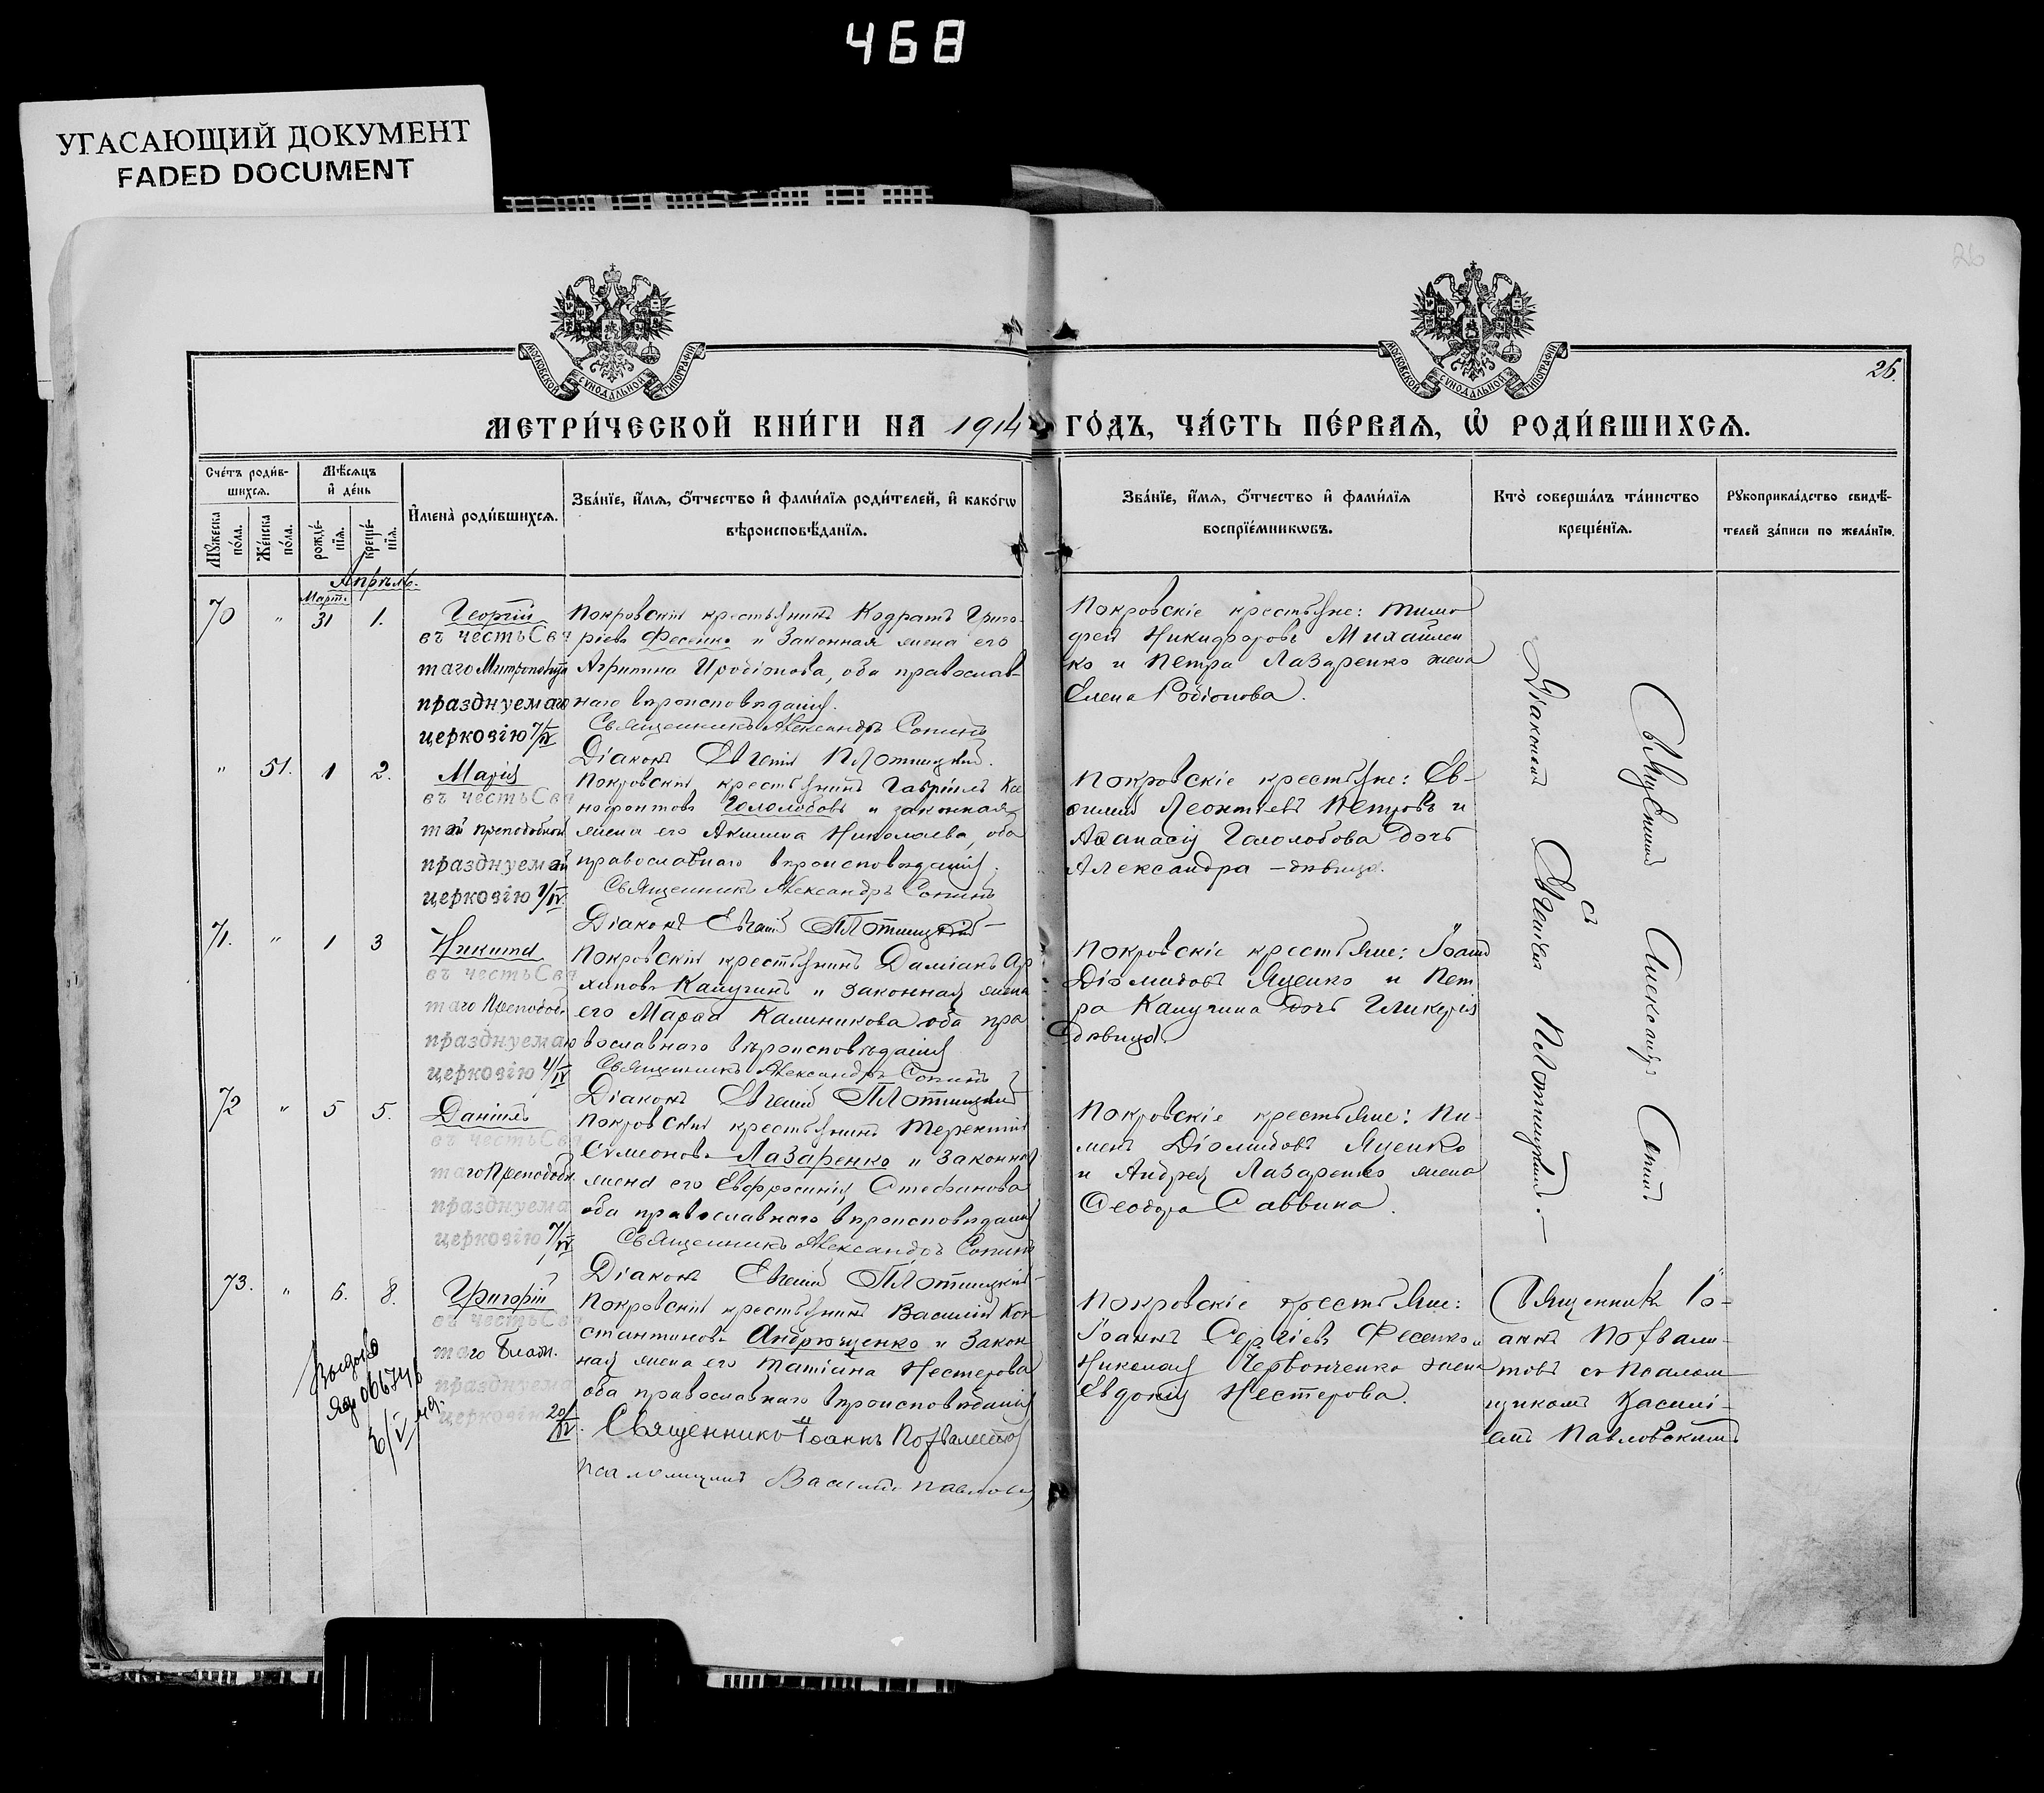 468
УГАСАЮЩИЙ ДОКУМЕНТ
FADED DOCUMENT
26
МОСКОВСКОЙ СѴНОДАЛЬНОЙ ТИПОГРАФІИ
МОСКОВСКОЙ СѴНОДАЛЬНОЙ ТИПОГРАФІИ
26.
МЕТРИ́ЧЕСКОЙ КНИ́ГИ НА 1914 ГО́ДЪ, ЧА́СТЬ ПЕ́РВАѦ, Ѡ҆ РОДИ́ВШИХСѦ.
Сче́тъ роди́в-
шихсѧ.
Мꙋ́жеска по́ла.
Же́нска по́ла.
Мѣ́сѧцъ
и҆ де́нь
рожде́-
нїѧ.
креще́-
нїѧ.
И҆мена̀ роди́вшихсѧ.
Зва́нїе, и҆́мѧ, ѻ҆́тчество и҆ фами́лїѧ роди́телей, и҆ како́гѡ
вѣроисповѣ́данїѧ.
Зва́нїе, и҆́мѧ, ѻ҆́тчество и҆ фами́лїѧ
воспрїе́мникѡвъ.
Кто̀ соверша́лъ та́инство
креще́нїѧ.
Рꙋкоприкла́дство свидѣ́-
телей за́писи по жела́нїю.
Апрѣль.
Март.
70 " 31 1.
Георгій
въ честь Свя
таго
празднуемаго
церковію 7/IV
Покровскій крестьянинъ Кодратъ Григо-
ріевъ Фесенко и законная жена его
Агрипина Иродіонова, оба православ-
наго вѣроисповѣданія.
Священникъ Александръ Сопинъ
Діаконъ Евгеній Плотницкій.
Покровскіе крестьяне: Тимо
фей Никифоровъ Михайлен
ко и Петра Лазаренко жена
Елена Родіонова.
" 51. 1 2.
Марія
въ честь Свя
той преподобной
празднуемой
церковію 1/IV
Покровскій крестьянинъ Гавріилъ Ксе
нофонтовъ Гололобовъ и законная
жена его Акилина Николаева, оба
православнаго вѣроисповѣданія.
Священникъ Александръ Сопинъ
Діаконъ Евгеній Плотницкій
Покровскіе крестьяне: Ев-
ѳимій Леонтіевъ Петровъ и
Аѳанасія Гололобова дочь
Александра – дѣвица.
71. " 1 3
Никита
въ честь Свя
таго Преподоб.
празднуемаго
церковію 4/IV
Покровскій крестьянинъ Даміанъ Ар
хиповъ Калугинъ и законная жена
его Марѳа Калиникова оба пра
вославнаго вѣроисповѣданія
Священникъ Александръ Сопинъ
Діаконъ Евгеній Плотницкій
Покровскіе крестьяне: Іоаннъ
Діомидовъ Яценко и Пет
ра Калугина дочь Гликерія
дѣвица.
72 " 5 5.
Даніилъ
въ честь Свя
таго Преподобн
празднуема
церковію 7/IV
Покровскій крестьянинъ Терентій
Сѵмеоновъ Лазаренко и законная
жена его Евфросинія Стефанова
оба православнаго вѣроисповѣданія
Священникъ Александръ Сопинъ
Діаконъ Евгеній Плотницкій
Покровскіе крестьяне: Пи-
менъ Діомидовъ Яценко
и Андрея Лазаренко жена
Ѳеодора Саввина.
Священникъ Александръ Сопинъ
съ
Діакономъ Евгеніемъ Плотницкимъ.
73. " 6. 8.
Григорій
въ честь Свя
таго Блаж.
празднуема
церковію 20/IV.
Покровскій крестьянинъ Василій Кон
стантиновъ Андрющенко и закон
ная жена его Татіана Нестерова
оба православнаго вѣроисповѣданія
Священникъ Іоаннъ Похвалитовъ
Псаломщикъ Василій Павловскі
Покровскіе крестьяне:
Іоаннъ Сергіевъ Фесенко и
Николая Червонченко жена
Евдокія Нестерова.
Священникъ Іо-
аннъ Похвали-
товъ съ Псалом-
щикомъ Василі-
емъ Павловскимъ